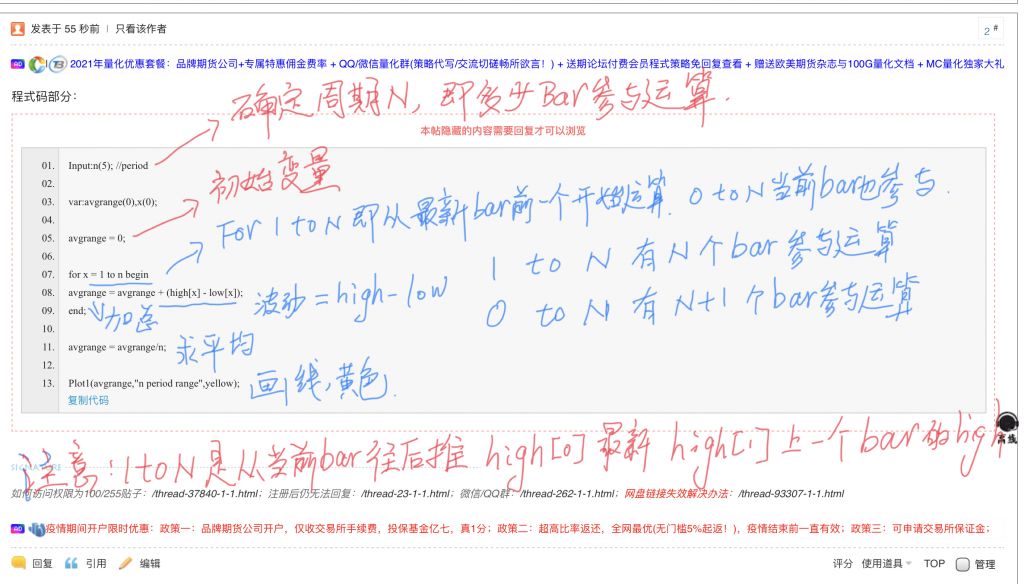 发表于 55 秒前 | 只看该作者
2#
2021年量化优惠套餐：品牌期货公司+专属特惠佣金费率 + QQ/微信量化群(策略代写/交流切磋畅所欲言！) + 送期论坛付费会员程式策略免回复查看 + 赠送欧美期货杂志与100G量化文档 + MC量化独家大礼
程式码部分：
确定周期N，即多少Bar参与运算.
本帖隐藏的内容需要回复才可以浏览
01. Input:n(5); //period
02.
初始变量
03. var:avgrange(0),x(0);
04.
For 1 to N 即从最新bar前一个开始运算. 0 to N 当前bar也参与.
05. avgrange = 0;
06.
1 to N 有N个bar参与运算
07. for x = 1 to n begin
08. avgrange = avgrange + (high[x] - low[x]);
波动=high-low
0 to N 有N+1个bar参与运算
09. end;
加总
10.
11. avgrange = avgrange/n;
求平均
12.
13. Plot1(avgrange,"n period range",yellow);
画线,黄色.
复制代码
离线
注意:1 to N是从当前bar往后推 high[0]最新 high[1]上一个bar的high
SIGNATURE
如何访问权限为100/255贴子：/thread-37840-1-1.html；注册后仍无法回复：/thread-23-1-1.html；微信/QQ群：/thread-262-1-1.html；网盘链接失效解决办法：/thread-93307-1-1.html
疫情期间开户限时优惠：政策一：品牌期货公司开户，仅收交易所手续费，投保基金亿七，真1分；政策二：超高比率返还，全网最优(无门槛5%起返！)，疫情结束前一直有效；政策三：可申请交易所保证金；
回复 引用 编辑 评分 使用道具 TOP 管理